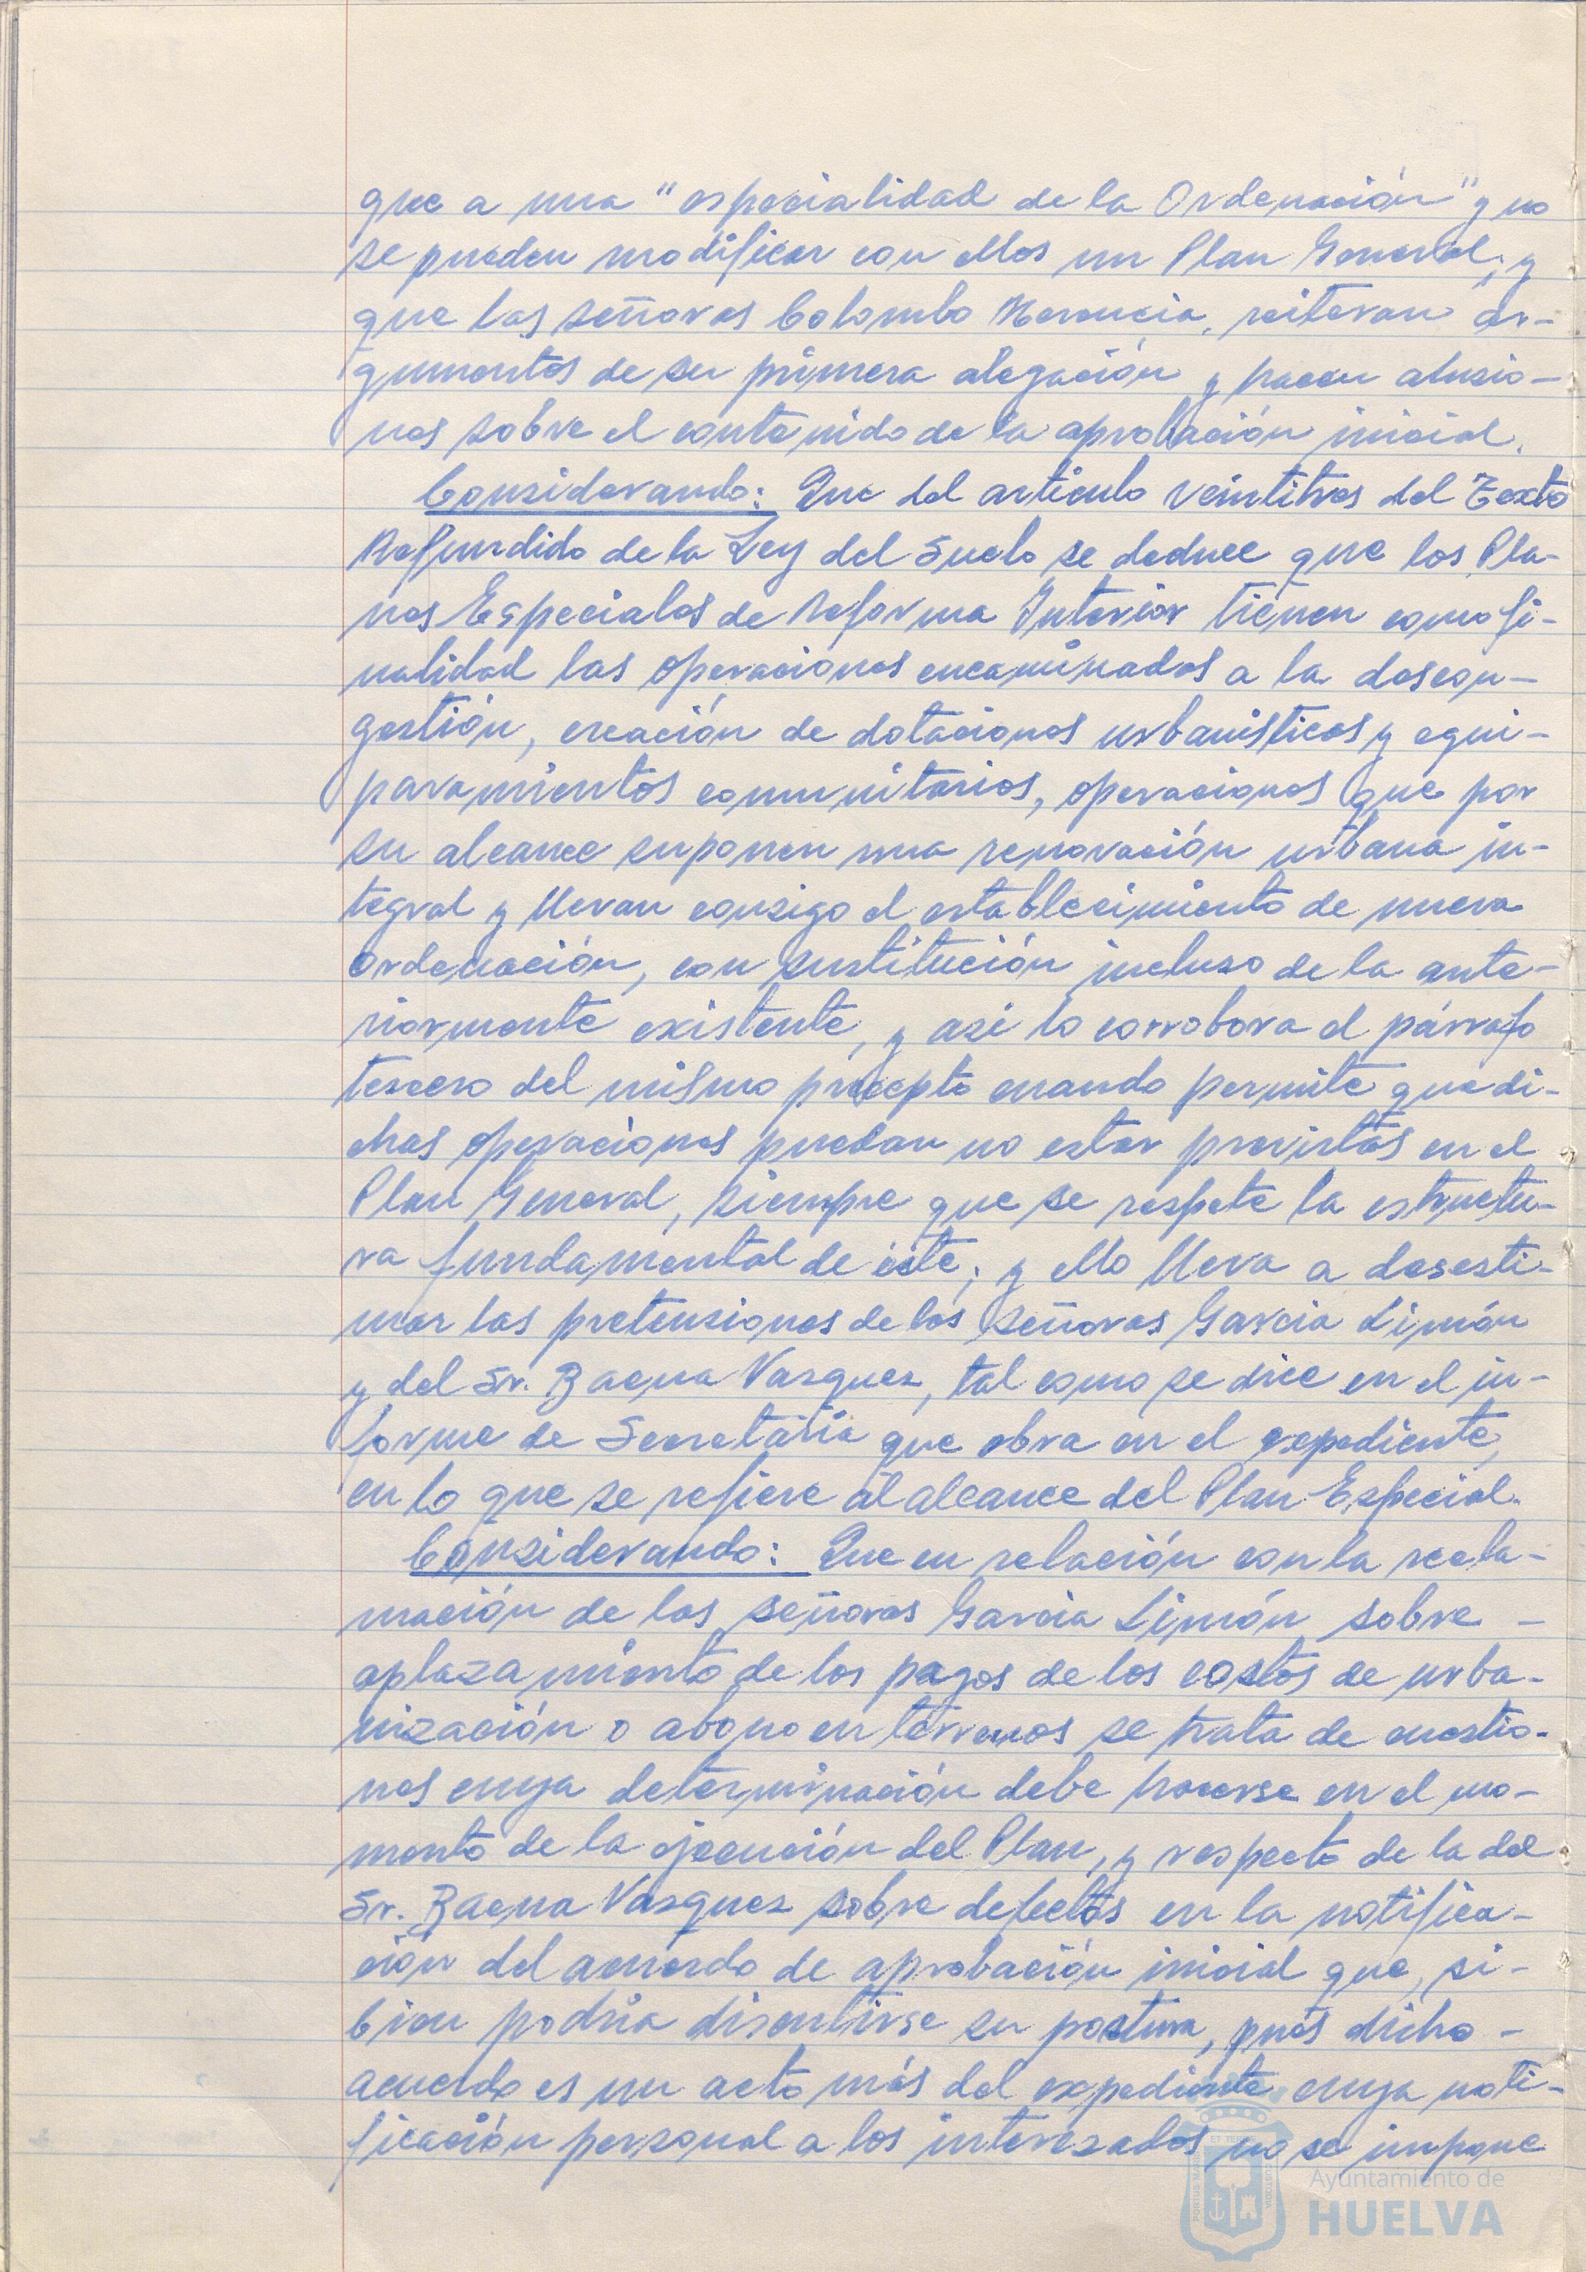 que a una "especialidad de la Ordenación" y no
se pueden modificar con ellos un Plan General; y
que las señoras Colombo Herencia, reiteran ar-
gumentos de su primera alegación y hacen alusio-
nes sobre el contenido de la aprobación inicial.
Considerando: Que del artículo veintitres del Texto
Refundido de la Ley del Suelo se deduce que los Pla-
nes Especiales de Reforma Interior tienen como fi-
nalidad las operaciones encaminadas a la descon-
gestión, creación de dotaciones urbanísticas y equi-
paramientos comunitarios, operaciones que por
su alcance suponen una renovación urbana in-
tegral y llevan consigo el establecimiento de nueva
Ordenación, con sustitución incluso de la ante-
riormente existente, y asi lo corrobora el párrafo
tercero del mismo precepto cuando permite que di-
chas operaciones puedan no estar previstas en el
Plan General, siempre que se respete la estructu-
ra fundamental de éste; y ello lleva a desesti-
mar las pretensiones de los señores Garcia Limón
y del Sr. Baena Vasquez, tal como se dice en el in-
forme de Secretaría que obra en el expediente,
en lo que se refiere al alcance del Plan Especial.
Considerando: Que en relación con la recla-
mación de los señores Garcia Limón sobre -
aplazamiento de los pagos de los costos de urba-
nización o abono en terrenos se trata de cuestio-
nes cuya determinación debe hacerse en el mo-
mento de la ejecución del Plan, y respecto de la del
Sr. Baena Vasquez sobre defectos en la notifica-
ción del acuerdo de aprobación inicial que, si-
bien podría discutirse su postura, pues dicho -
acuerdo es un acto más del expediente cuya noti-
ficación personal a los interesados no se impone
Ayuntamiento de
HUELVA